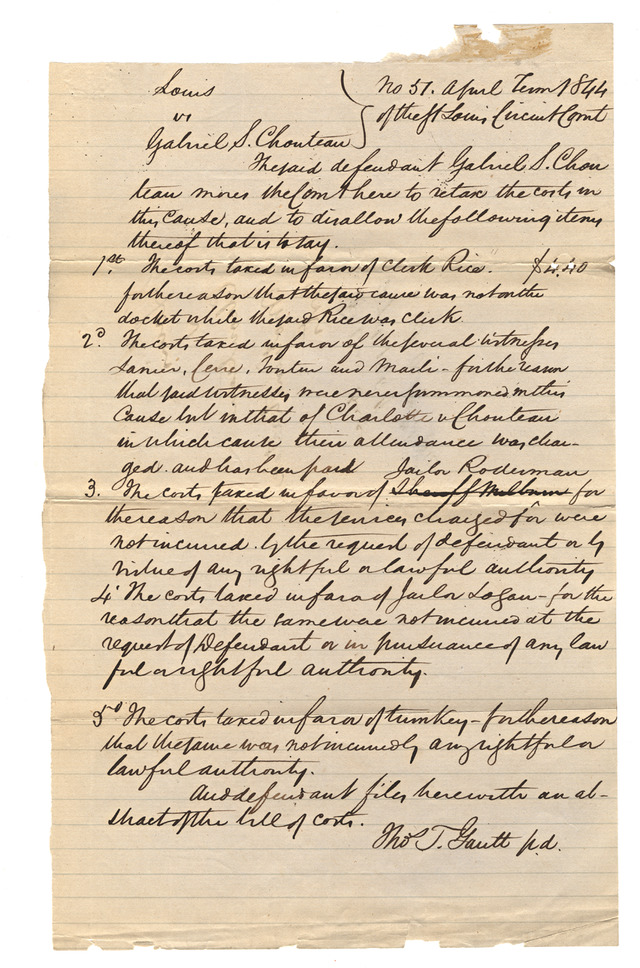 Louis
vs
Gabriel S. Chouteau
No 51. April Term 1844
of the St Louis Circuit Court
The said defendant Gabriel S. Chou
teau moves the Court here to retax the costs in
this cause, and to disallow the following items
thereof that is to say.
1st. The costs taxed in favor of Clerk Rice. $4.40
for the reason that the said cause was not on the
docket while the said Rice was clerk
2d The costs taxed in favor of the several witnesses
Cerre, and - for the reason
that said witnesses were never summoned in this
cause but in that of Charlotte v Chouteau
in which cause their attendance was char-
ged. and has been paid Jailor Roderman
3. The costs taxed in favor of Sheriff Milburn for
the reason that the services charged for were
not incurred. by the request of defendant or by
virtue of any rightful or lawful authority
4. The costs taxed in favor of Jailor Logan - for the
reason that the same were not incurred at the
request of Defendant or in pursuance of any law
ful or rightful authority.
5d The costs taxed in favor of turnkey - for the reason
that the same was not incurred by any rightful or
lawful authority.
And defendant files herewith an ab-
stract of the bill of costs.
Thos T. Gantt p.d.